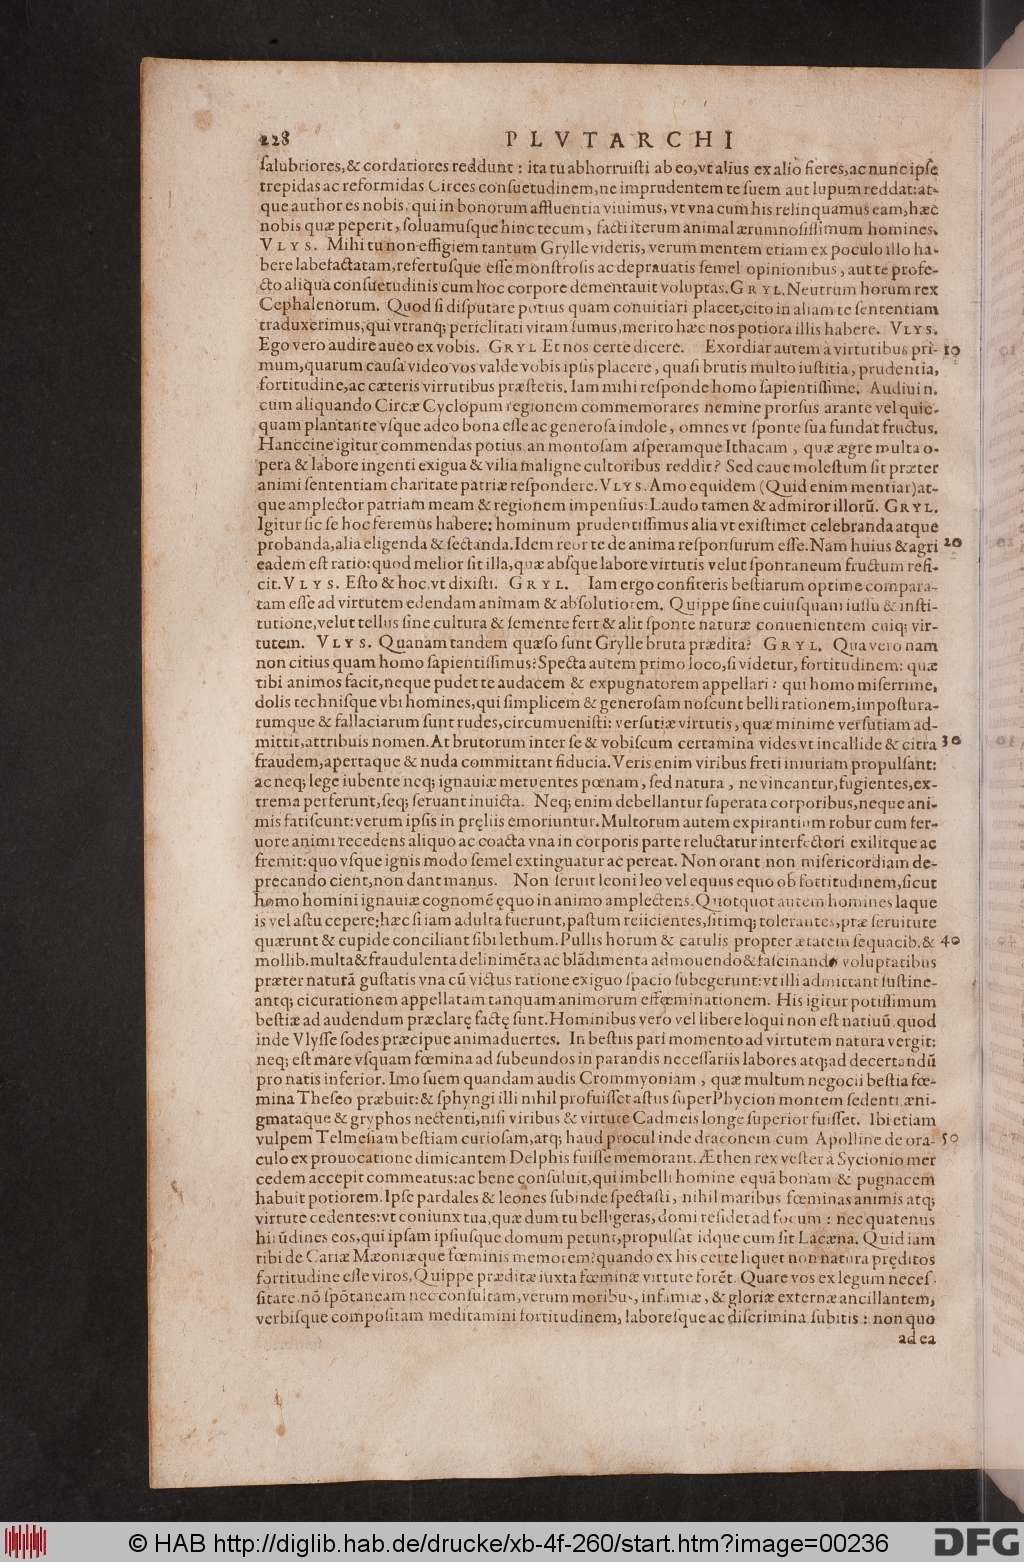 228 PLVTARCHI
salubriores, & cordatiores reddunt: ita tu abhorruisti ab eo, vt alius ex alio fieres, ac nunc ipse
trepidas ac reformidas Circes consuetudinem, ne imprudentem te suem aut lupum reddat: at-
que author es nobis, qui in bonorum affluentia viuimus, vt vna cum his relinquamus eam, hæc
nobis quæ peperit, soluamusque hinc tecum, facti iterum animal ærumnosissimum homines.
VLYS. Mihi tu non effigiem tantum Grylle videris, verum mentem etiam ex poculo illo ha-
bere labefactatam, refertusque esse monstrosis ac deprauatis semel opinionibus, aut te profe-
cto aliqua consuetudinis cum hoc corpore dementauit voluptas. GRYL. Neutrum horum rex
Cephalenorum. Quod si disputare potius quam conuitiari placet, cito in aliam te sententiam
traduxerimus, qui vtranq; periclitati vitam sumus, merito hæc nos potiora illis habere. VLYS.
Ego vero audire aueo ex vobis. GRYL Et nos certe dicere. Exordiar autem à virtutibus pri- 10
mum, quarum causa video vos valde vobis ipsis placere, quasi brutis multo iustitia, prudentia,
fortitudine, ac cæteris virtutibus præstetis. Iam mihi responde homo sapientissime. Audiui n.
cum aliquando Circæ Cyclopum regionem commemorares nemine prorsus arante vel quic-
quam plantante vsque adeo bona esse ac generosa indole, omnes vt sponte sua fundat fructus.
Hanccine igitur commendas potius an montosam asperamque Ithacam, quæ ægre multa o-
pera & labore ingenti exigua & vilia maligne cultoribus reddit? Sed caue molestum sit præter
animi sententiam charitate patriæ respondere. VLYS. Amo equidem (Quid enim mentiar) at-
que amplector patriam meam & regionem impensius: Laudo tamen & admiror illorũ. GRYL.
Igitur sic se hoc feremus habere: hominum prudentissimus alia vt existimet celebranda atque
probanda, alia eligenda & sectanda. Idem reor te de anima responsurum esse. Nam huius & agri 20
eadem est ratio: quod melior sit illa, quæ absque labore virtutis velut spontaneum fructum refi-
cit. VLYS. Esto & hoc. vt dixisti. GRYL. Iam ergo confiteris bestiarum optime compara-
tam esse ad virtutem edendam animam & absolutiorem. Quippe sine cuiusquam iussu & insti-
tutione, velut tellus sine cultura & semente fert & alit sponte naturæ conuenientem cuiq; vir-
tutem. VLYS. Quanam tandem quæso sunt Grylle bruta prædita? GRYL. Qua vero nam
non citius quam homo sapientissimus? Specta autem primo loco, si videtur, fortitudinem: quæ
tibi animos facit, neque pudet te audacem & expugnatorem appellari: qui homo miserrime,
dolis technisque vbi homines, qui simplicem & generosam noscunt belli rationem, impostura-
rumque & fallaciarum sunt rudes, circumuenisti: versutiæ virtutis, quæ minime versutiam ad-
mittit, attribuis nomen. At brutorum inter se & vobiscum certamina vides vt incallide & citra 30
fraudem, apertaque & nuda committant fiducia. Veris enim viribus freti iniuriam propulsant:
ac neq; lege iubente neq; ignauiæ metuentes pœnam, sed natura, ne vincantur, fugientes, ex-
trema perferunt, seq; seruant inuicta. Neq; enim debellantur superata corporibus, neque ani-
mis fatiscunt: verum ipsis in pręliis emoriuntur. Multorum autem expirantium robur cum fer-
uore animi recedens aliquo ac coacta vna in corporis parte reluctatur interfectori exilitque ac
fremit: quo vsque ignis modo semel extinguatur ac pereat. Non orant non misericordiam de-
precando cient, non dant manus. Non seruit leoni leo vel equus equo ob fortitudinem, sicut
homo homini ignauiæ cognomẽ ęquo in animo amplectens. Quotquot autem homines laque
is vel astu cepere: hæc si iam adulta fuerunt, pastum reiicientes, sitimq; tolerantes, præ seruitute
quærunt & cupide conciliant sibi lethum. Pullis horum & catulis propter ætatem sequacib. & 40
mollib. multa & fraudulenta delinimẽta ac blãdimenta admouendo & fascinando voluptatibus
præter naturã gustatis vna cũ victus ratione exiguo spacio subegerunt: vt illi admittant sustine-
antq; cicurationem appellatam tanquam animorum effœminationem. His igitur potissimum
bestiæ ad audendum præclarę factę sunt. Hominibus vero vel libere loqui non est natiuũ. quod
inde Vlysse sodes præcipue animaduertes. In bestiis pari momento ad virtutem natura vergit:
neq; est mare vsquam fœmina ad subeundos in parandis necessariis labores atq; ad decertandũ
pro natis inferior. Imo suem quandam audis Crommyoniam, quæ multum negocii bestia fœ-
mina Theseo præbuit: & sphyngi illi nihil profuisset astus super Phycion montem sedenti. æni-
gmataque & gryphos nectenti, nisi viribus & virtute Cadmeis longe superior fuisset. Ibi etiam
vulpem Telmesiam bestiam curiosam, atq; haud procul inde draconem cum Apolline de ora- 50
culo ex prouocatione dimicantem Delphis fuisse memorant. Æthen rex vester à Sycionio mer
cedem accepit commeatus: ac bene consuluit, qui imbelli homine equã bonam & pugnacem
habuit potiorem. Ipse pardales & leones subinde spectasti, nihil maribus fœminas animis atq;
virtute cedentes: vt coniunx tua, quæ dum tu belligeras, domi residet ad focum: nec quatenus
hirũdines eos, qui ipsam ipsiusque domum petunt, propulsat idque cum sit Lacæna. Quid iam
tibi de Cariæ Mæoniæque fœminis memorem? quando ex his certe liquet non natura pręditos
fortitudine esse viros, Quippe præditæ iuxta fœminæ virtute forẽt. Quare vos ex legum neces-
sitate nõ spõtaneam nec consultam, verum moribus, infamiæ, & gloriæ externæ ancillantem,
verbisque compositam meditamini fortitudinem, laboresque ac discrimina subitis: non quo
ad ea
© HAB http://diglib.hab.de/drucke/xb-4f-260/start.htm?image=00236
DFG